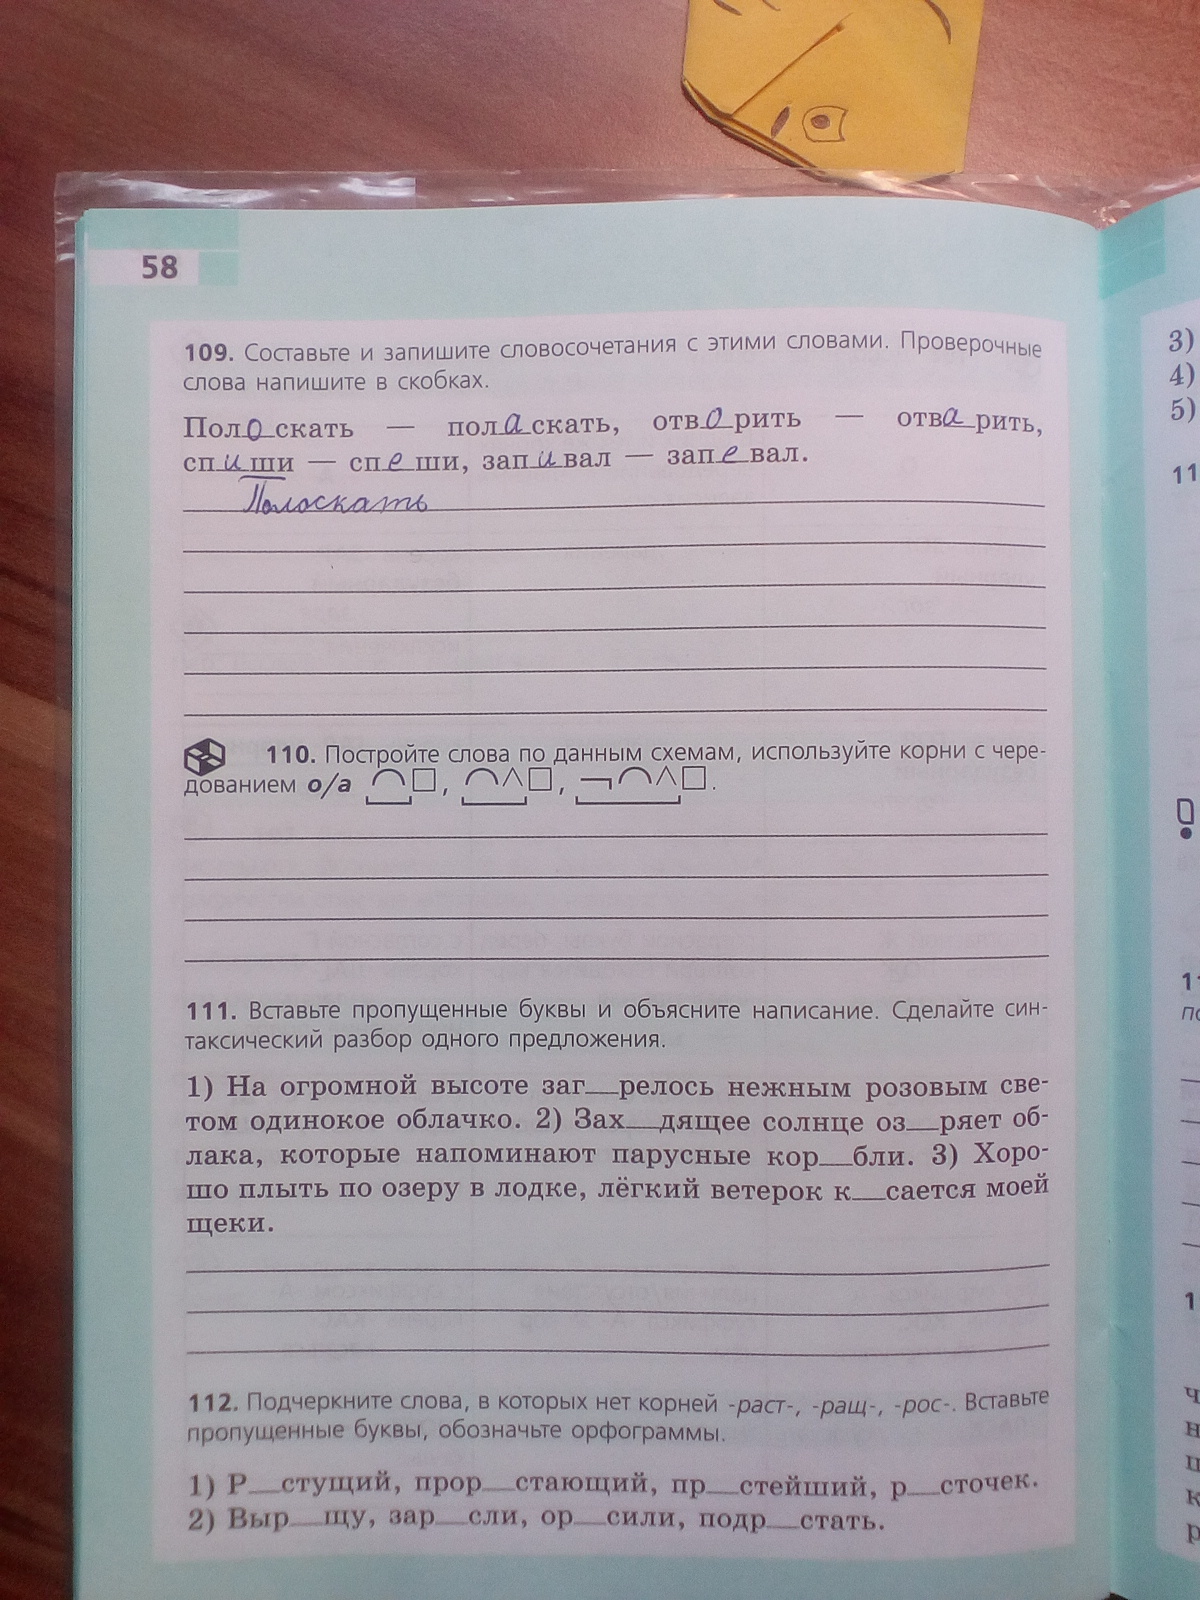 58
109. Составьте и запишите словосочетания с этими словами. Проверочные
слова напишите в скобках.
Полоскать — поласкать, отворить — отварить,
спиши — спеши, запивал — запевал.
Полоскать
110. Постройте слова по данным схемам, используйте корни с чере-
дованием о/а , , .
111. Вставьте пропущенные буквы и объясните написание. Сделайте син-
таксический разбор одного предложения.
1) На огромной высоте заг__релось нежным розовым све-
том одинокое облачко. 2) Зах__дящее солнце оз__ряет об-
лака, которые напоминают парусные кор__бли. 3) Хоро-
шо плыть по озеру в лодке, лёгкий ветерок к__сается моей
щеки.
112. Подчеркните слова, в которых нет корней -раст-, -ращ-, -рос-. Вставьте
пропущенные буквы, обозначьте орфограммы.
1) Р__стущий, прор__стающий, пр__стейший, р__сточек.
2) Выр__щу, зар__сли, ор__сили, подр__стать.
3)
4)
5)